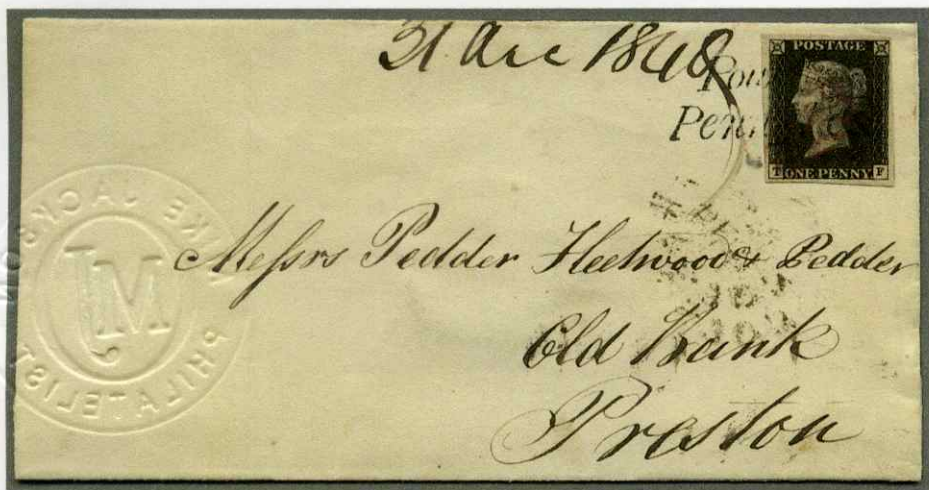 31 Dec 1840
POSTAGE
Pen
T ONE PENNY F
Messrs Pedder Fleetwood & Pedder
Old Bank
Preston
MIKE JACKSON
MJ
PHILATELIST